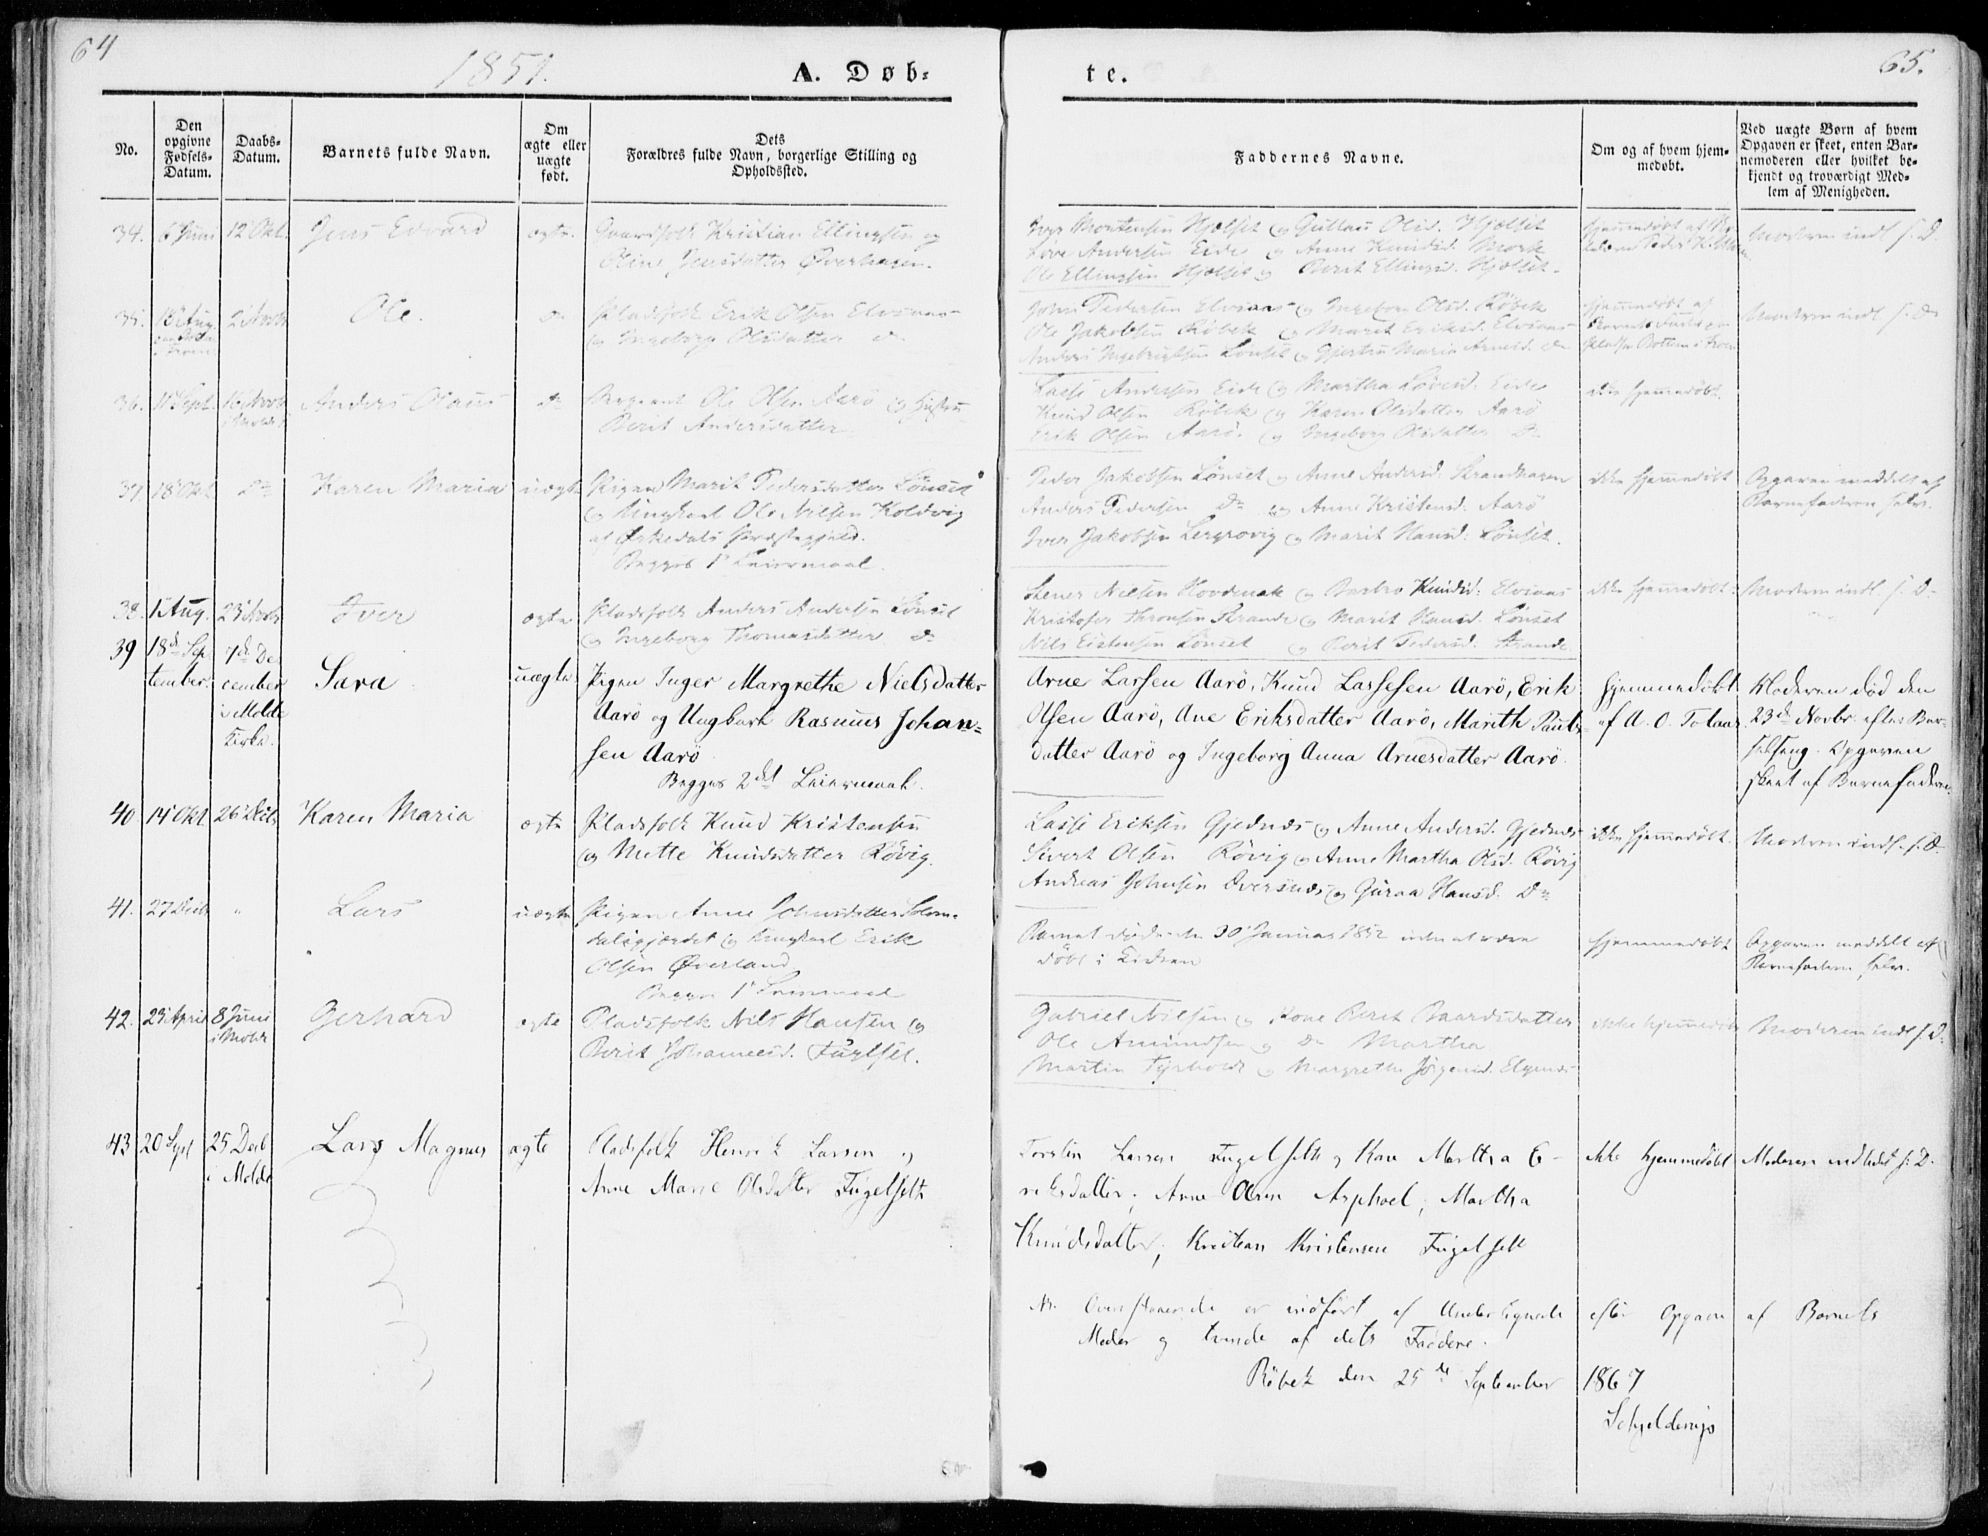 64
1851.
A. Døb-
te.
65.
No.
Den opgivne Fødsels-Datum.
Daabs-Datum.
Barnets fulde Navn.
Om ægte eller uægte født.
Dets Forældres fulde Navn, borgerlige Stilling og Opholdssted.
Faddernes Navne.
Om og af hvem hjem-medøbt.
Ved uægte Børn af hvem Opgaven er skeet, enten Bar-nemoderen eller hvilket be-kjendt og troværdigt Med-lem af Menigheden.
34. 6 Juni 12 Okt. Jens Edvard ægte Gaardfolk Kristian Ellingsen og
Oline Jensdatter Øverhagen.
Mortensen Hjelset og Olsd. Hjelset
Andersen Eide og Anne Knudsd. Mork
Ole Ellingsen Hjelset og Berit Ellingsd. Hjelset.
hjemmedøbt af
Moderen indl. s. D.
35. 13 Aug. 2 Novb. Ole. do Pladsfolk Erik Olsen Elvsaas
og Ingeborg Olsdatter do
John Pedersen Elvsaas og Ingeborg Olsd. Röbek
Ole Jakobsen Röbek og Marit Eriksd. Elvsaas
Anders Ingebrigtsen Lönset og Gjertru Maria Arnesd. do
hjemmedøbt af
Moderen indl. s. D.
36. 11 Sept. 16 Novb. Anders Olaus do Ole Olsen Aarö og Hustru
i Molde
Berit Andersdatter
Lasse Andersen Eide og Martha Eide
Knud Olsen Röbek og Karen Olsdatter Aarö
Erik Olsen Aarö. og Ingeborg Olsdatter Do
ikke hjemmedøbt.
37. 18 Okt. Do Karen Maria uægte Pigen Marit Pedersdatter Lönset
og Ungkarl Ole Nilsen Koldvig
af Præstegjeld.
Begges 1 Leiermaal.
Peder Jakobsen Lönset og Anne Andersd. Strandhagen
Anders Pedersen Do og Anne Kristensd. Aarö
Iver Jakobsen Lergrovig og Marit Hansd. Lönset.
ikke hjemmedøbt
Opgaven meddelt af
Barnefaderen selv.
38. 1 Aug. 23 Novb. Iver ægte Pladsfolk Anders Andersen Lönset
og Ingeborg Thomasdatter do
Stener Nilsen Hovdenak og Barbro Knudsd: Elvsaas
Kristofer Thronsen Strande og Marit Hansd. Lönset
Nils Eistensen Lönset og Berit Pedersd. Strande
ikke hjemmedøbt
Moderen indl. s. D.
39 18d Sep
tember. 7d De
cember
i Molde
Kirke. Sara uægte Pigen Inger Margrethe Nielsdatter
Aarö og Ungkarl Rasmus Johan-
sen Aarö
Begges 2det Leiermaal.
Arne Larsen Aarö, Knud Lassesen Aarö, Erik
Olsen Aarö, Ane Eriksdatter Aarö, Marith Pauls-
datter Aarö og Ingeborg Anna Arnesdatter Aarö.
hjemmedøbt
af A. O. Tolaas
Moderen död den
23de Novbr. efter Bar-
selseng. Opgaven
skeet af Barnefaderen.
40 14 Okt 26 Decb Karen Maria ægte Pladsfolk Knud Kristensen
og Mette Knudsdatter Rövig.
Lasse Eriksen Gjednæs og Anne Andersd. Gjednæs
Sivert Olsen Rövig og Anne Martha Olsd. Rövig
Andreas Johnsen Oversnæs og Guraa Hansd. Do
ikke hjemmedøbt.
Moderen indl. s. D.
41. 27 Decb " Lars uægte Pigen Anne Johnsdatter Solem-
dalsgjerdet og Ungkarl Erik
Olsen Øverland
Begges 1 Leiermaal
Barnet döde den 30 Januar 1852 uden at være
döbt i Kirken
hjemmedøbt
Opgaven meddelt af
Barnefaderen selv.
42. 23 April 8 Juni
i Molde Gerhard ægte Pladsfolk Nils Hansen og
Berit Johannesd. Fuglset.
Gabriel Nilsen og Kone Berit Baardsdatter
Ole Amundsen og Do Martha
Martin Tyrholm og Margrethe Jörgensd. Elgenæs
ikke hjemmedøbt
Moderen indl. s. D.
43 20 Sept 25 Decb
i Molde Lars Magnus ægte Pladsfolk Henrik Larsen og
Anne Marie Olsdatter Fugelseth
Torstin Larsen Fugelseth og Kone Martha E-
riksdatter; Arne Olsen Asphoel, Martha
Knudsdatter; Kristian Kristensen Fugelseth
ikke hjemmedøbt
Moderen indledet s. D.
Nb. Ovenstaaende er indfört af Undertegnede efter Opgave af Barnets
Moder og tvende af dets Faddere.
Röbek den 25de September 1867
Schjelderup